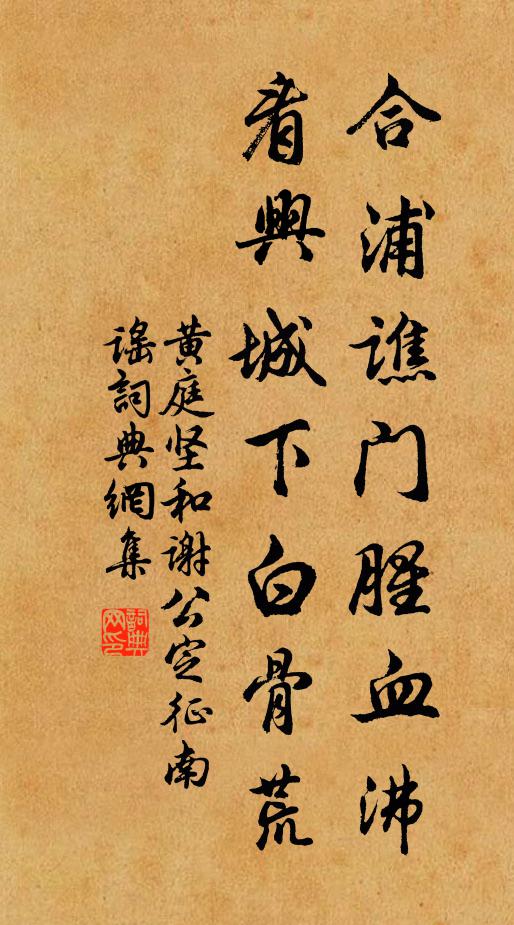 合浦譙门腥血沸
看興城下白骨荒
黄庭坚和谢公定征南
谣詞典網集
詞典网印